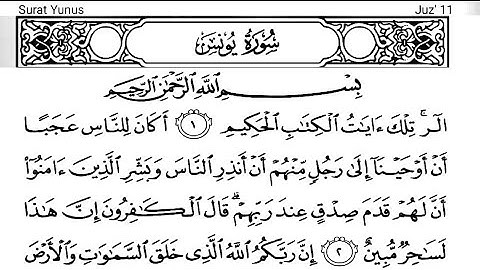 Surat Yunus Juz' 11
سُورَةُ يُونُسَ
بِسْمِ ٱللَّهِ ٱلرَّحْمَٰنِ ٱلرَّحِيمِ
الٓر ۚ تِلْكَ ءَايَٰتُ ٱلْكِتَٰبِ ٱلْحَكِيمِ ١ أَكَانَ لِلنَّاسِ عَجَبًا
أَنْ أَوْحَيْنَآ إِلَىٰ رَجُلٍ مِّنْهُمْ أَنْ أَنذِرِ ٱلنَّاسَ وَبَشِّرِ ٱلَّذِينَ ءَامَنُوٓا۟
أَنَّ لَهُمْ قَدَمَ صِدْقٍ عِندَ رَبِّهِمْ ۗ قَالَ ٱلْكَٰفِرُونَ إِنَّ هَٰذَا
لَسَٰحِرٌ مُّبِينٌ ٢ إِنَّ رَبَّكُمُ ٱللَّهُ ٱلَّذِى خَلَقَ ٱلسَّمَٰوَٰتِ وَٱلْأَرْضَ